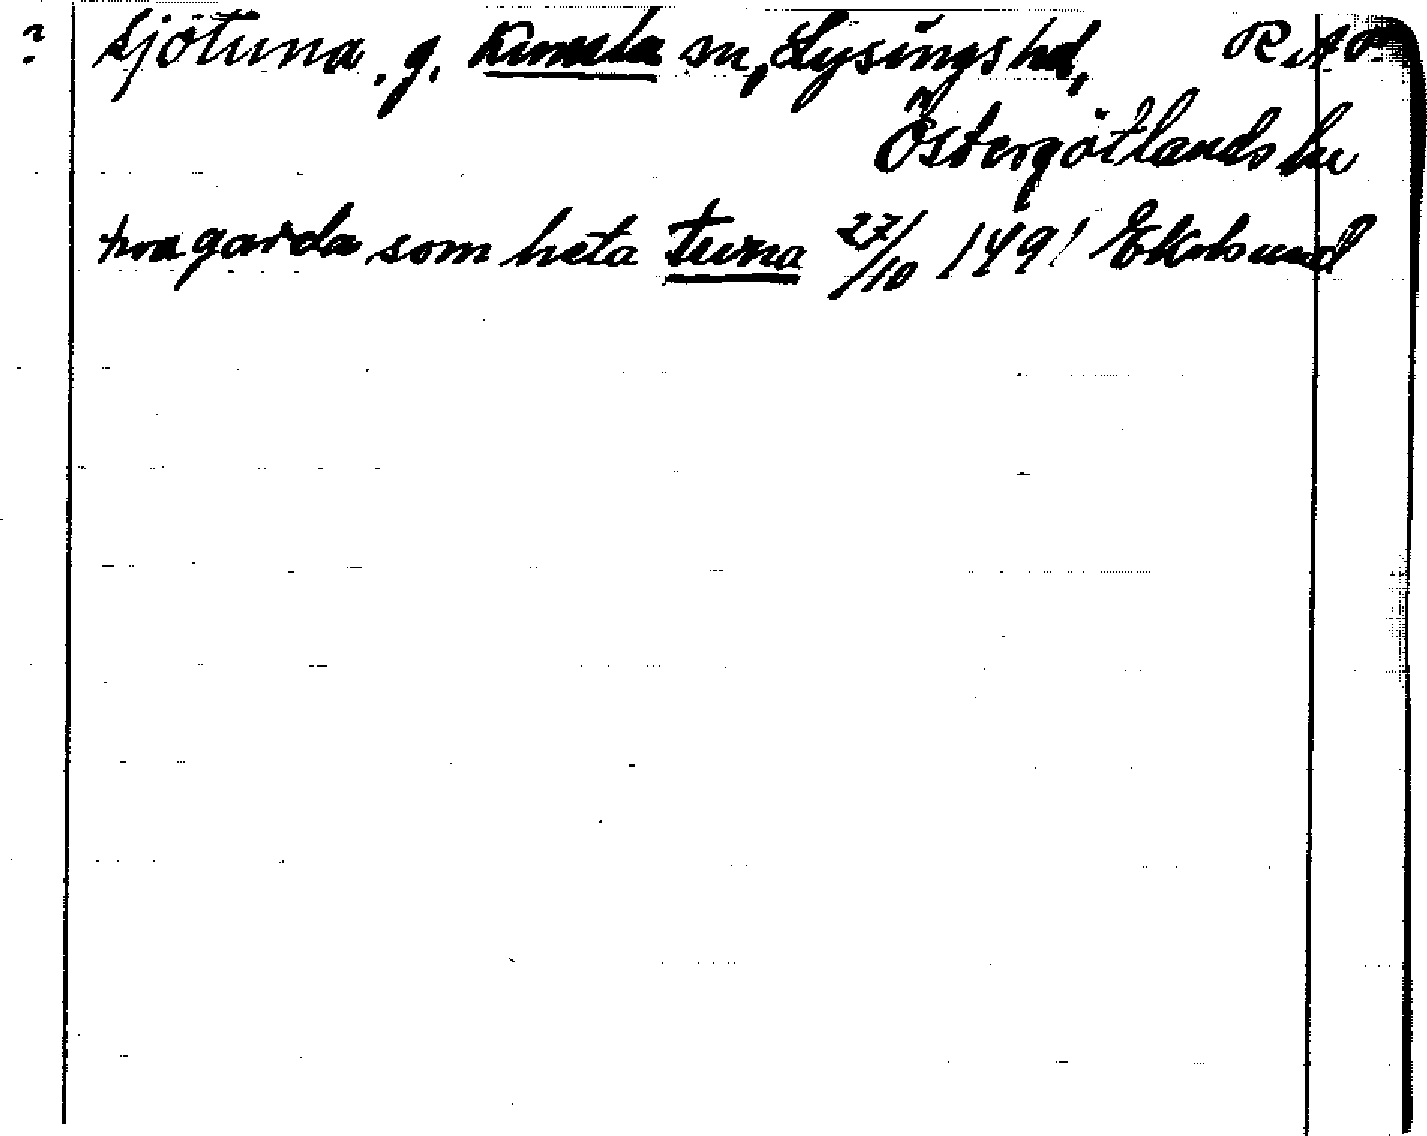 ? Sjötuna. g. Kumla sn, Lysings hd, RAP
Östergötlands län
tva garda som heta tuna 27/10 1491 Ekolsund